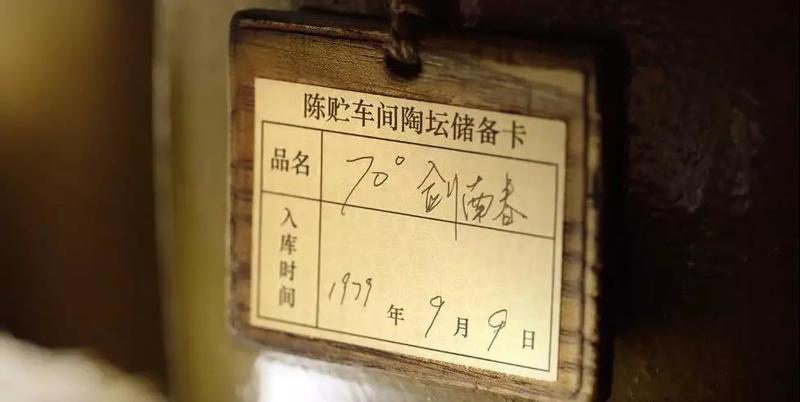 陈贮车间陶坛储备卡
品名 70° 剑南春
入库时间 1979年9月9日